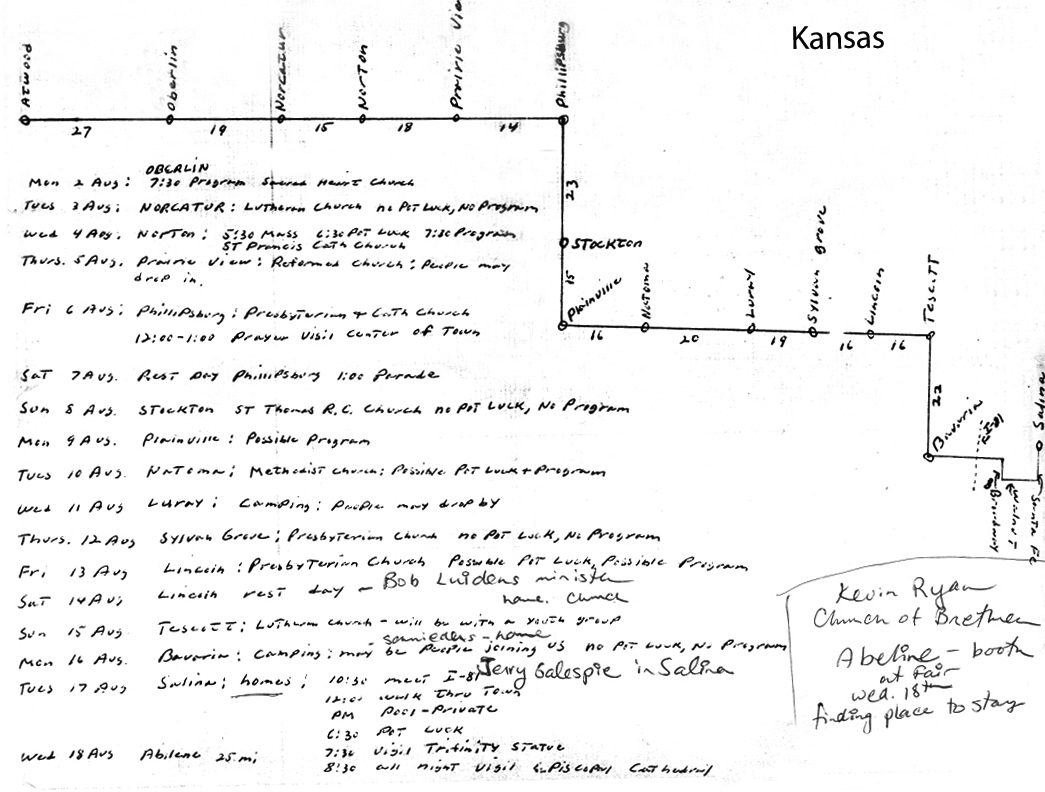 Kansas
Atwood
Oberlin
Norcatur
Norton
Prairie View
Phillipsburg
27
19
15
18
14
23
STOCKTON
15
Plainville
Natoma
Luray
Sylvan Grove
Lincoln
Tescott
16
20
19
16
16
22
Bavaria
Salina
Broadway
Walnut
Santa Fe
OBERLIN
Mon 2 Aug: 7:30 Program Sacred Heart Church
Tues 3 Aug: NORCATUR: Lutheran Church no Pot Luck, No Program
Wed 4 Aug. Norton: 5:30 Mass 6:30 Pot Luck 7:30 Program
ST Francis Cath Church
Thurs. 5 Aug. Prairie View: Reformed Church: People may
drop in.
Fri 6 Aug: Phillipsburg: Presbyterian + Cath Church
12:00-1:00 Prayer Vigil Center of Town
Sat 7 Aug. Rest Day Phillipsburg 1:00 Parade
Sun 8 Aug. STOCKTON ST Thomas R.C. Church no Pot Luck, No Program
Mon 9 Aug. Plainville: Possible Program
Tues 10 Aug Natoma: Methodist Church: Possible Pot Luck + Program
Wed 11 Aug Luray: Camping: People may drop by
Thurs. 12 Aug Sylvan Grove: Presbyterian Church no Pot Luck, No Program
Fri 13 Aug Lincoln: Presbyterian Church Possible Pot Luck, Possible Program
Sat 14 Aug Lincoln rest day - Bob Luidens minister
home. Church
Sun 15 Aug Tescott: Lutheran Church - will be with a youth group
- home
Mon 16 Aug. Bavaria: Camping: may be People joining us no Pot Luck, No Program
Tues 17 Aug Salina: homes: 10:30 meet I-81 Jerry Galespie in Salina
12:00 walk thru Town
PM Pool-Private
6:30 Pot Luck
7:30 Vigil Trifinity Statue
Wed 18 Aug Abilene 25 mi
8:30 all night Vigil Episcopal Cathedral
Kevin Ryan
Church of Brethren
Abeline - booth
at fair
wed. 18th
finding place to stay